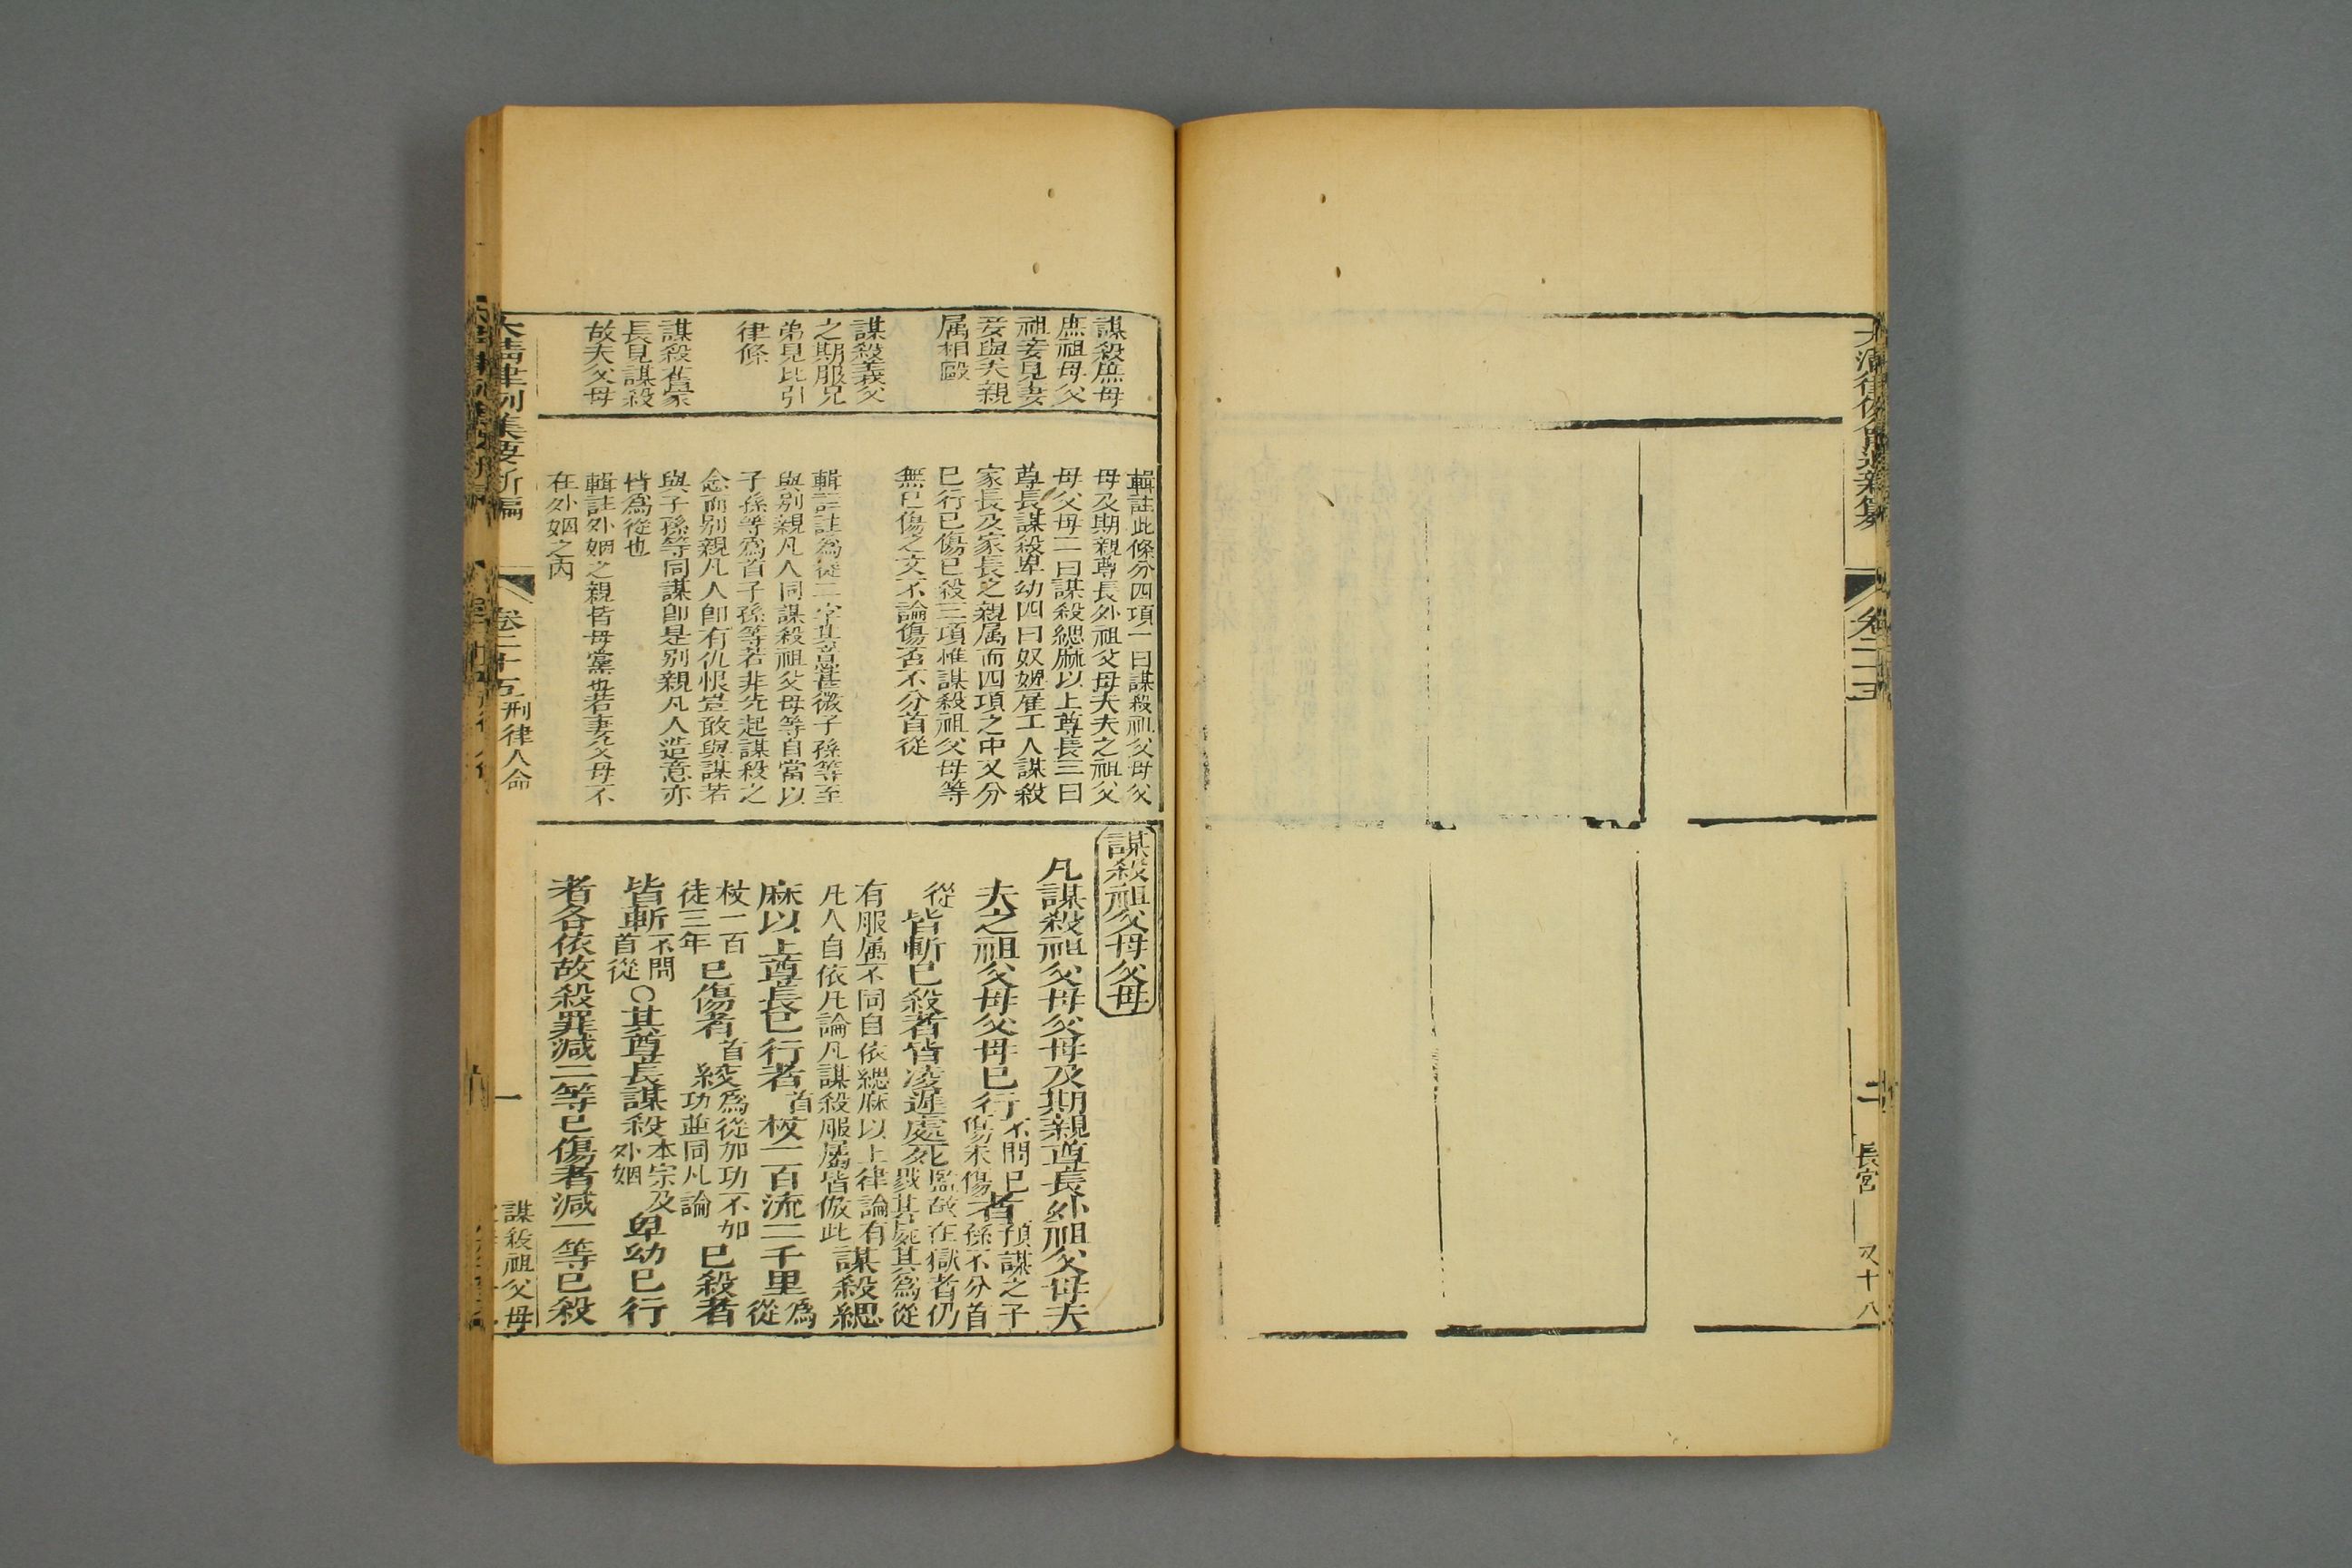 卷二十五
二
長宮
又十八
謀殺庶母
庶祖母父
祖妾見妻
妾與夫親
属相毆
謀殺義父
之期服兄
弟見比引
律條
謀殺舊家
長見謀殺
故夫父母
輯註此條分四項一曰謀殺祖父母父
母及期親尊長外祖父母夫夫之祖父
母父母二曰謀殺緦麻以上尊長三曰
尊長謀殺卑幼四曰奴婢雇工人謀殺
家長及家長之親属而四項之中又分
已行已傷已殺三項惟謀殺祖父母等
無已傷之文不論傷否不分首從
輯註註為從二字其意甚微子孫等至
與別親凡人同謀殺祖父母等自當以
子孫等為首子孫等若非先起謀殺之
念而別親凡人卽有仇恨豈敢與謀若
與子孫等同謀卽是別親凡人造意亦
皆為從也
輯註外姻之親皆母黨也若妻父母不
在外姻之内
謀殺祖父母父母
凡謀殺祖父母父母及期親尊長外祖父母夫
夫之祖父母父母已行不問已傷未傷者預謀之子孫不分首
從皆斬已殺者皆凌遲處死監故在獄者仍戮其屍其為從
有服属不同自依緦麻以上律論有凡人自依凡論凡謀殺服屬皆倣此謀殺緦
麻以上尊長已行者首杖一百流二千里為從
杖一百徒三年已傷者首絞為從加功不加功並同凡論已殺者
皆斬不問首從○其尊長謀殺本宗及外姻卑幼已行
者各依故殺罪減二等已傷者減一等已殺
大清律例集要新編
卷二十五
刑律人命
一
謀殺祖父母